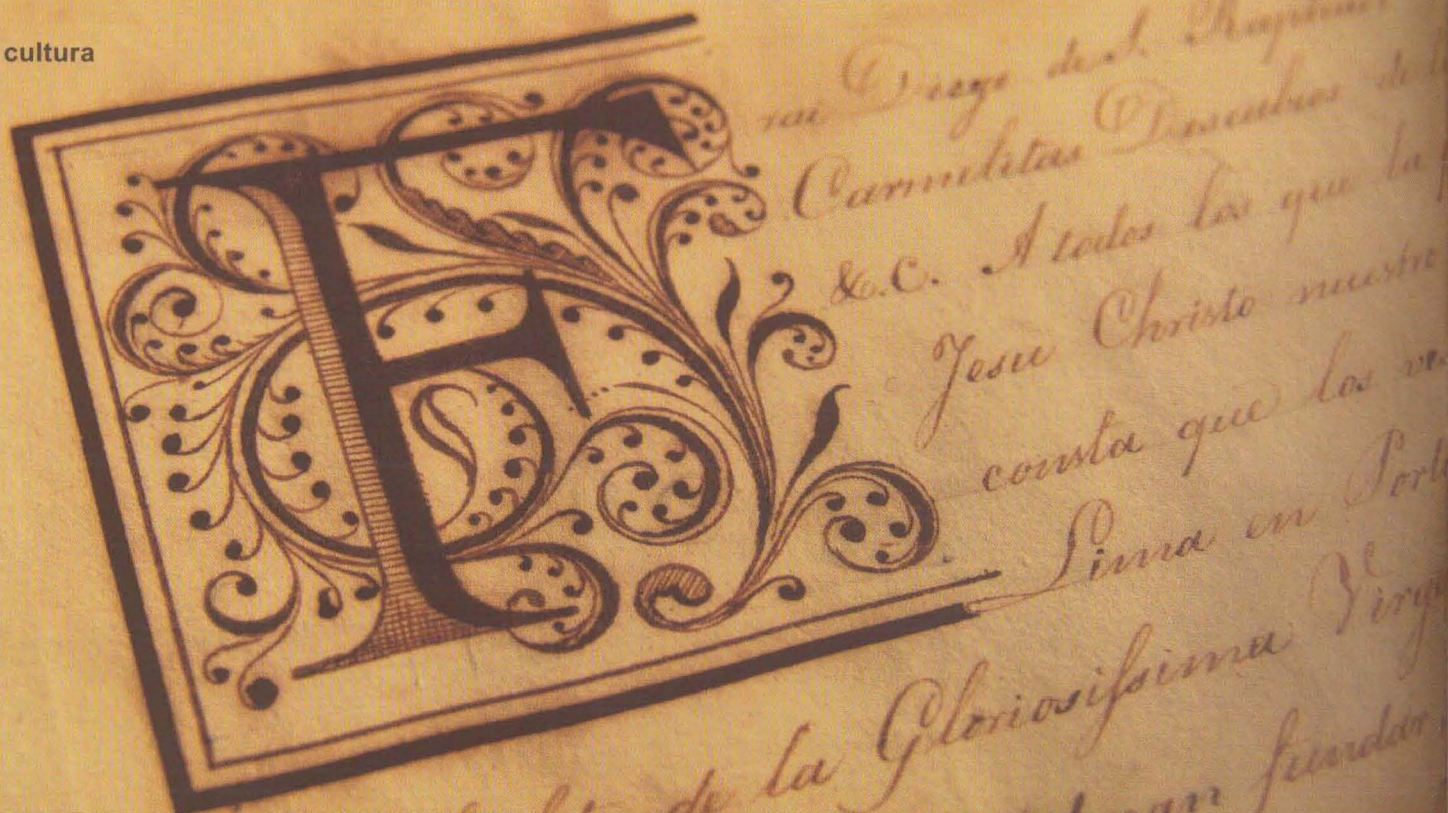 cultura
F
rai Diego de S. 
Carmelitas Descalzos de
&.C. A todos los que la
Jesu Christo nuestro
consta que los
Lima en
de la Gloriosissima
fundar